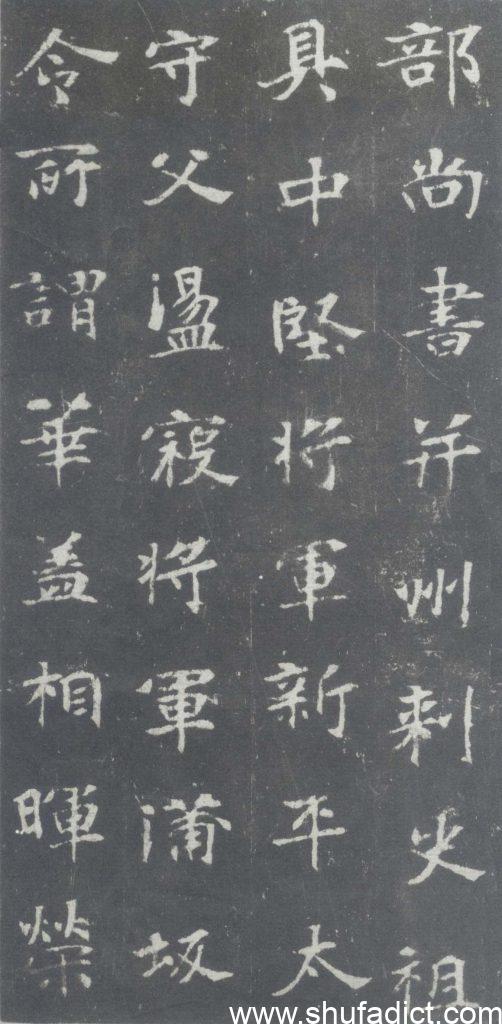 部尚書并州刺史祖
具中堅將軍新平太
守父盪寇將軍蒲坂
令所謂華蓋相暉榮
www.shufadict.com